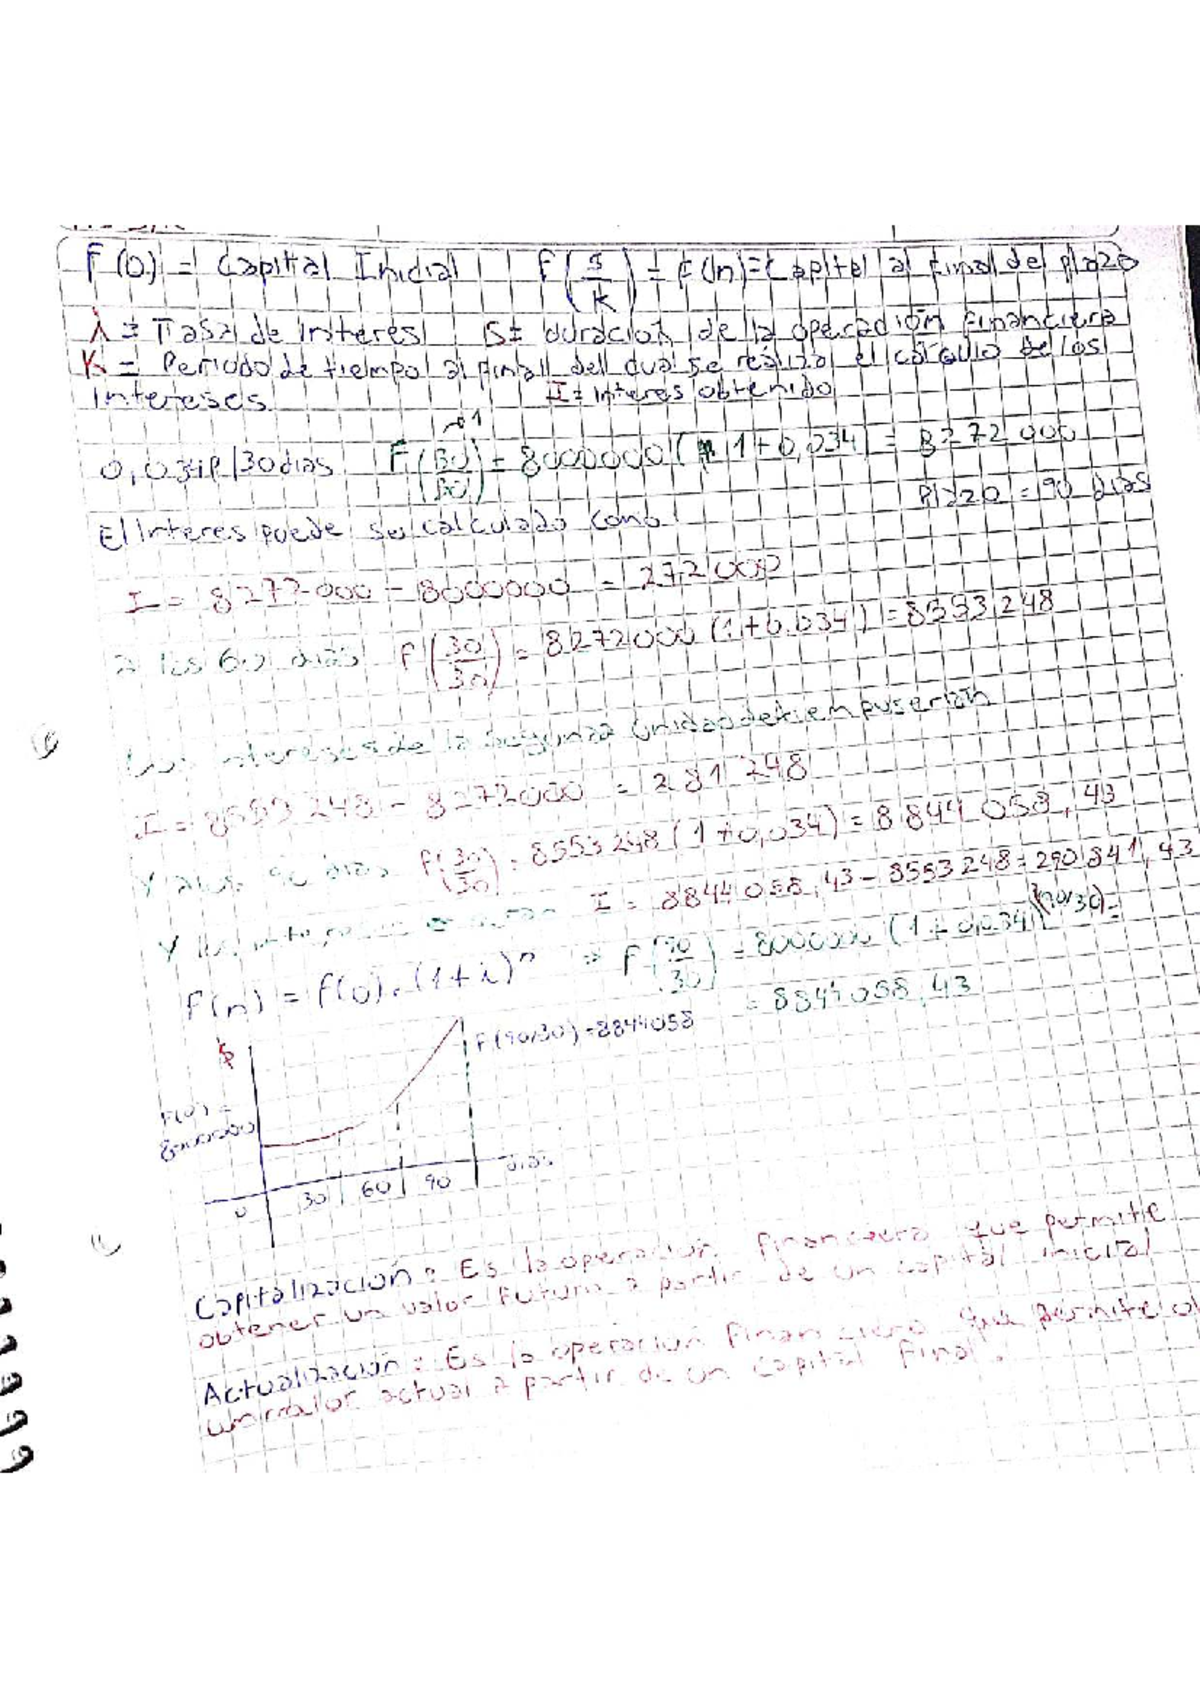 F(0) = Capital Inicial F(s/k) = F(n) = Capital al final del plazo
i = Tasa de interés s = duración de la operación financiera
K = Periodo de tiempo al final del cual se realiza el cálculo de los
intereses. I = interes obtenido
0,034 /30 dias F(30/30) = 8000000 (1+0,034) = 8272000
Plazo = 90 dias
El interes puede ser calculado como
I = 8272000 - 8000000 = 272000
a los 60 dias F(30/30) = 8272000 (1+0.034) = 8553248
Los intereses de la segunda unidad de tiempo serian
I = 8553248 - 8272000 = 281248
Y a los 90 dias F(30/30) = 8553248 (1+0,034) = 8844058,43
Y los intereses I = 8844058,43 - 8553248 = 290841,43
f(n) = f(0).(1+i)^n => F(90/30) = 8000000 (1+0,034)^(90/30) =
= 8844058,43
$ F(90/30) = 8844058
F(0) =
8000000
0 30 60 90 dias
Capitalización: Es la operación financiera que permite
obtener un valor futuro a partir de un capital inicial
Actualización: Es la operación financiera que permite
un valor actual a partir de un capital final.